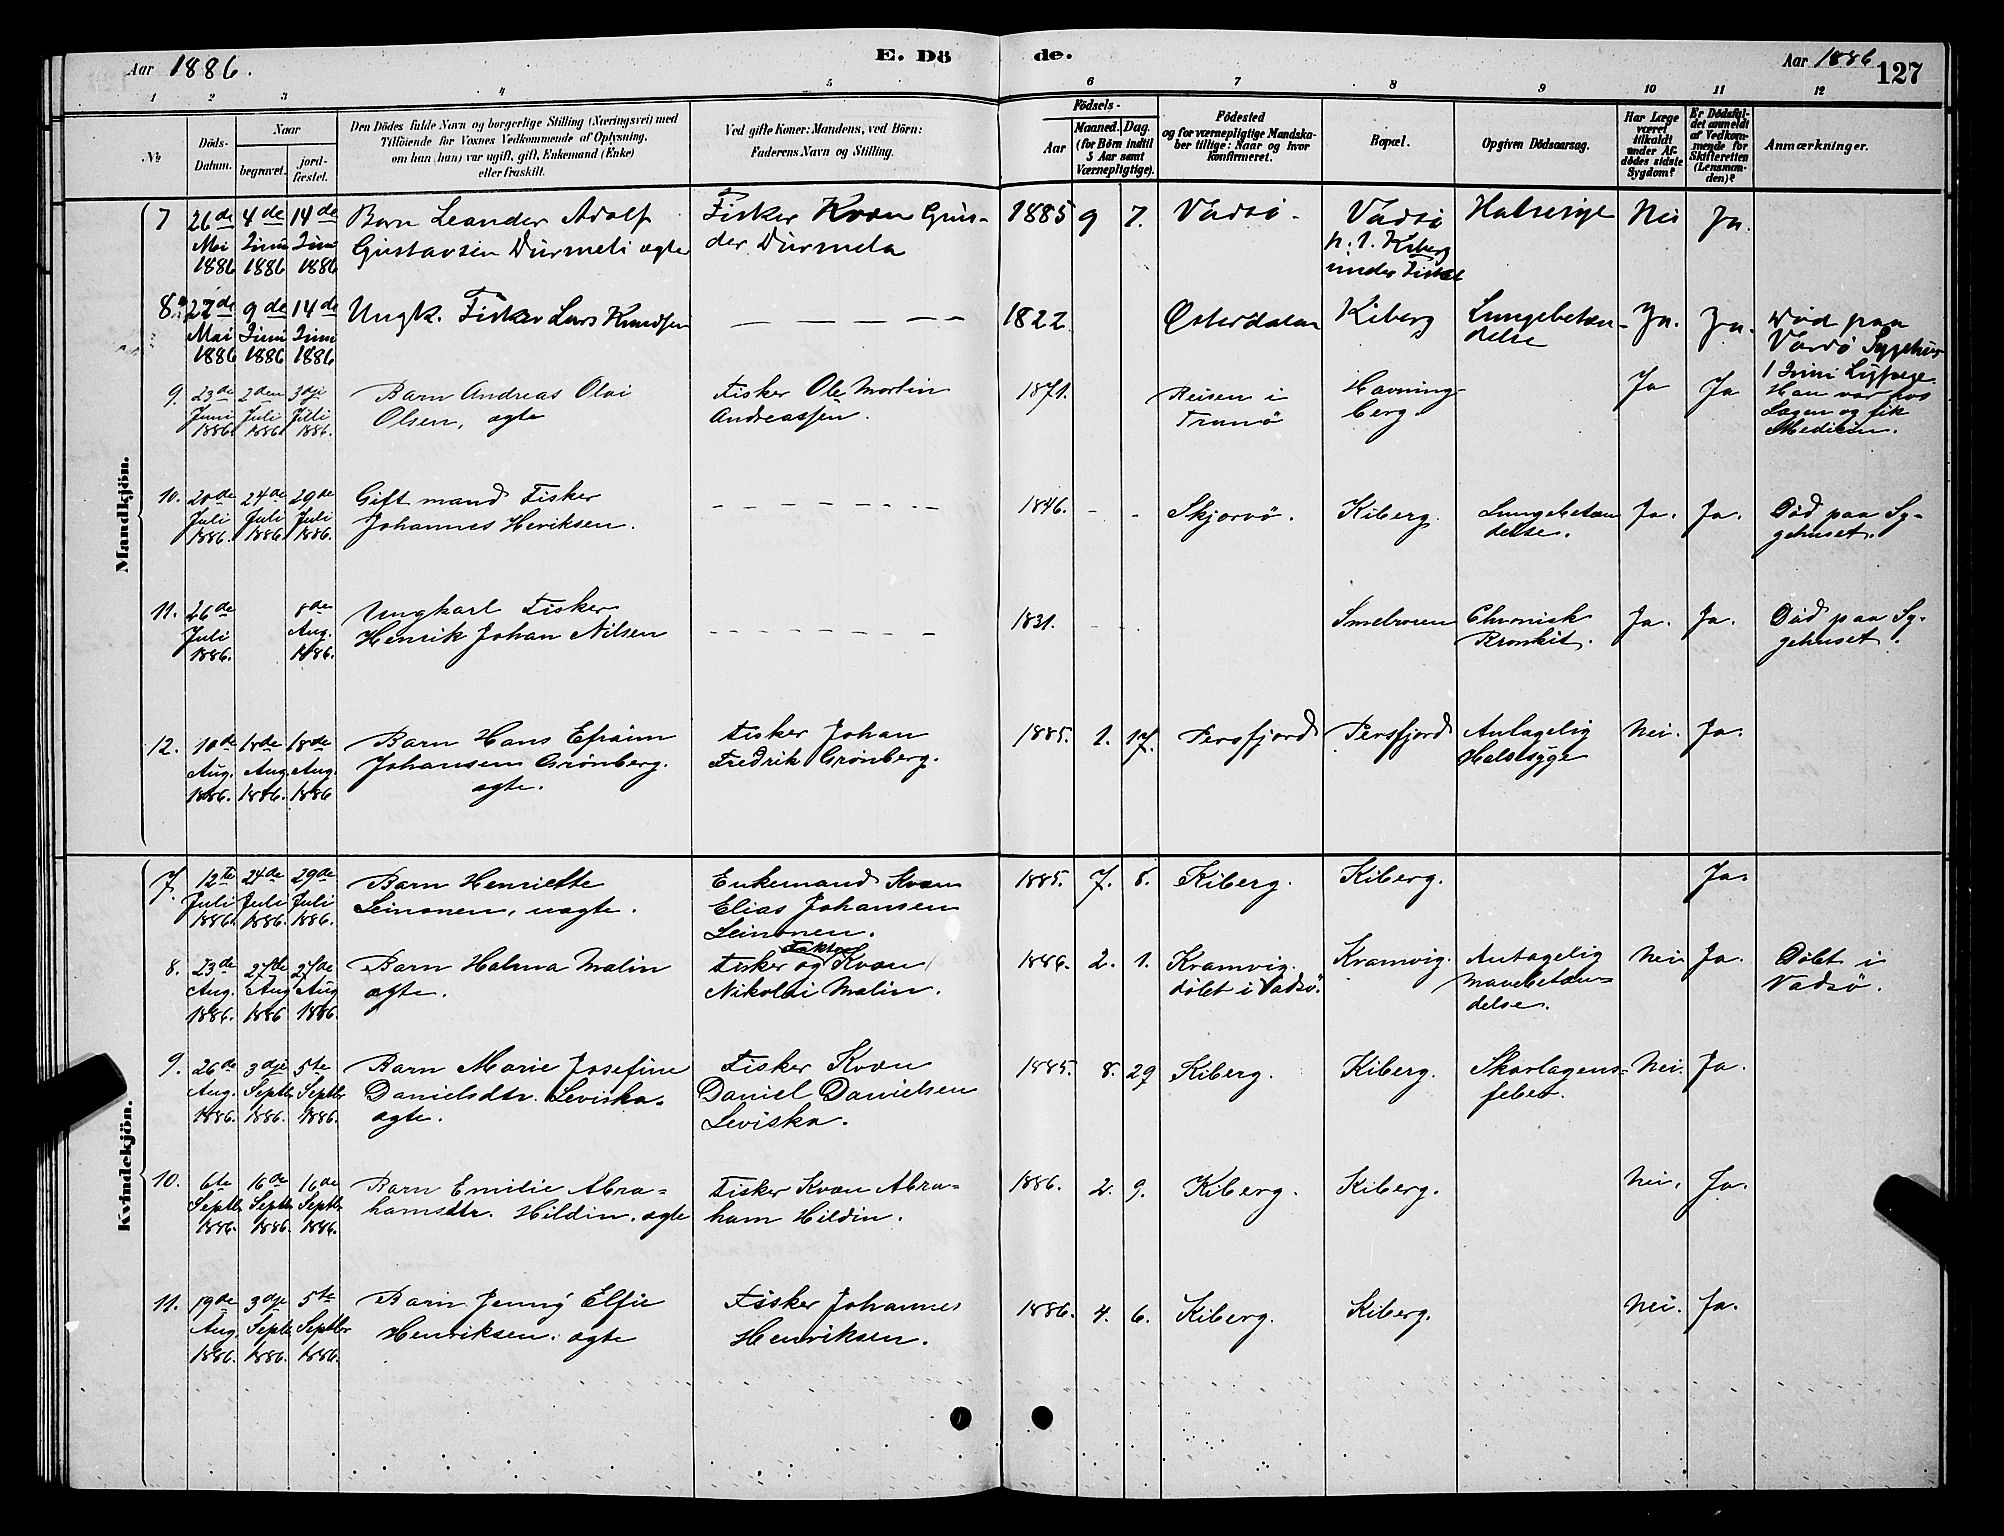 Aar 1886.
E. Dö
de.
Aar 1886
127
1 2 3 4 5 6 7 8 9 10 11 12
№
Döds-
Datum.
Naar
begravet.
jord-
fæstet.
Den Dödes fulde Navn og borgerlige Stilling (Næringsvei) med
Tilföiende for Voxnes Vedkommende af Oplysning,
om han (hun) var ugift, gift, Enkemand (Enke)
eller fraskilt.
Ved gifte Koner: Mandens, ved Börn:
Faderens Navn og Stilling.
Födsels-
Aar
Maaned. Dag.
(for Börn indtil
5 Aar samt
Værnepligtige).
Födested
og for værnepligtige Mandska-
ber tillige: Naar og hvor
konfirmeret.
Bopæl.
Opgiven Dödsaarsag.
Har Læge
været
tilkaldt
under Af-
dödes sidste
Sygdom?
Er Dödsfal-
det anmeldt
af Vedkom-
mende for
Skifteretten
(Lensman-
den)?
Anmærkninger.
Mandkjön.
7 26de 4de 14de Barn Leander Adolf Fisker Kvæn Gus- 1885 9 7. Vadsö. Vadsö Halssyge Nei Ja.
Mai Juni Juni Gustavsen Durmeli ægte der Durmela n. t. Kiberg
1886 1886 1886 under Fisket
8. 27de 9de 14de Ungk. Fisker Lars Knudsen — — — — 1822. Østerdalen Kiberg Lungebetæn- Ja. Ja. Død paa
Mai Juni Juni delse Vardö Sygehus
1886 1886 1886 1 Juni
9. 23de 2den 3dje Barn Andreas Olai Fisker Ole Martin 1871. Reisen i Havning- Ja Ja Han var hos
Juni Juli Juli Olsen, ægte Andreassen. Tranö berg Lægen og fik
1886. 1886. 1886. Medicin.
10. 20de 24de 29de Gift mand Fisker - - - - - - 1846. - - Skjervö. Kiberg. Lungebetæn Ja. Ja. Död paa Sy-
Juli Juli Juli Johannes Henriksen. delse. gehuset.
1886. 1886. 1886.
11. 26de 8de Ungkarl Fisker - - - - - - 1831. - - Smelroren Chronisk Ja. Ja. Död paa Sy-
Juli Aug. Henrik Johan Nilsen Bronkit. gehuset.
1886. 1886.
12. 10de 18de 18de Barn Hans Efraim Fisker Johan 1885. 1. 17. Persfjord Persfjord Antagelig Nei. Ja.
Aug. Aug. Aug. Johansen Grönberg. Fredrik Grönberg. Halssyge
1886. 1886. 1886 ægte.
Kvindekjön.
7. 12te 24de 29de Barn Henriette Enkemand Kvæn 1885. 7. 8. Kiberg. Kiberg. Ja.
Juli Juli Juli Leinonen, uægte. Elias Johansen
1886. 1886. 1886. Leinonen.
8. 23de 27de 27de Barn Halma Malin Fisker og Kvæn 1886. 2. 1. Kramvig. Kramvig. Antagelig Nei Ja. Döbt i
Aug. Aug Aug ægte. Nikolai Malin. döbt i Vadsö. Mavebetæn- Vadsö.
1886. 1886 1886. delse.
9. 26de 3dje 5te Barn Marie Josefine Fisker Kvæn 1885. 8. 29 Kiberg. Kiberg. Skarlagens- Nei. Ja.
Aug. Septbr Septbr Danielsdtr. Leviska. Daniel Danielsen feber.
1886. 1886. 1886. ægte. Leviska.
10. 6te 16de 16de Barn Emilie Abra- Fisker Kvæn Abra- 1886. 2. 9. Kiberg. Kiberg. Nei. Ja.
Septbr Septbr Septbr hamsdtr. Hildin. ægte ham Hildin.
1886. 1886. 1886.
11. 19de 3dje 5te Barn Jenny Elfie Fisker Johannes 1886. 4. 6. Kiberg. Kiberg. Nei. Ja.
Aug. Septbr Septbr Henriksen. ægte Henriksen.
1886. 1886. 1886.